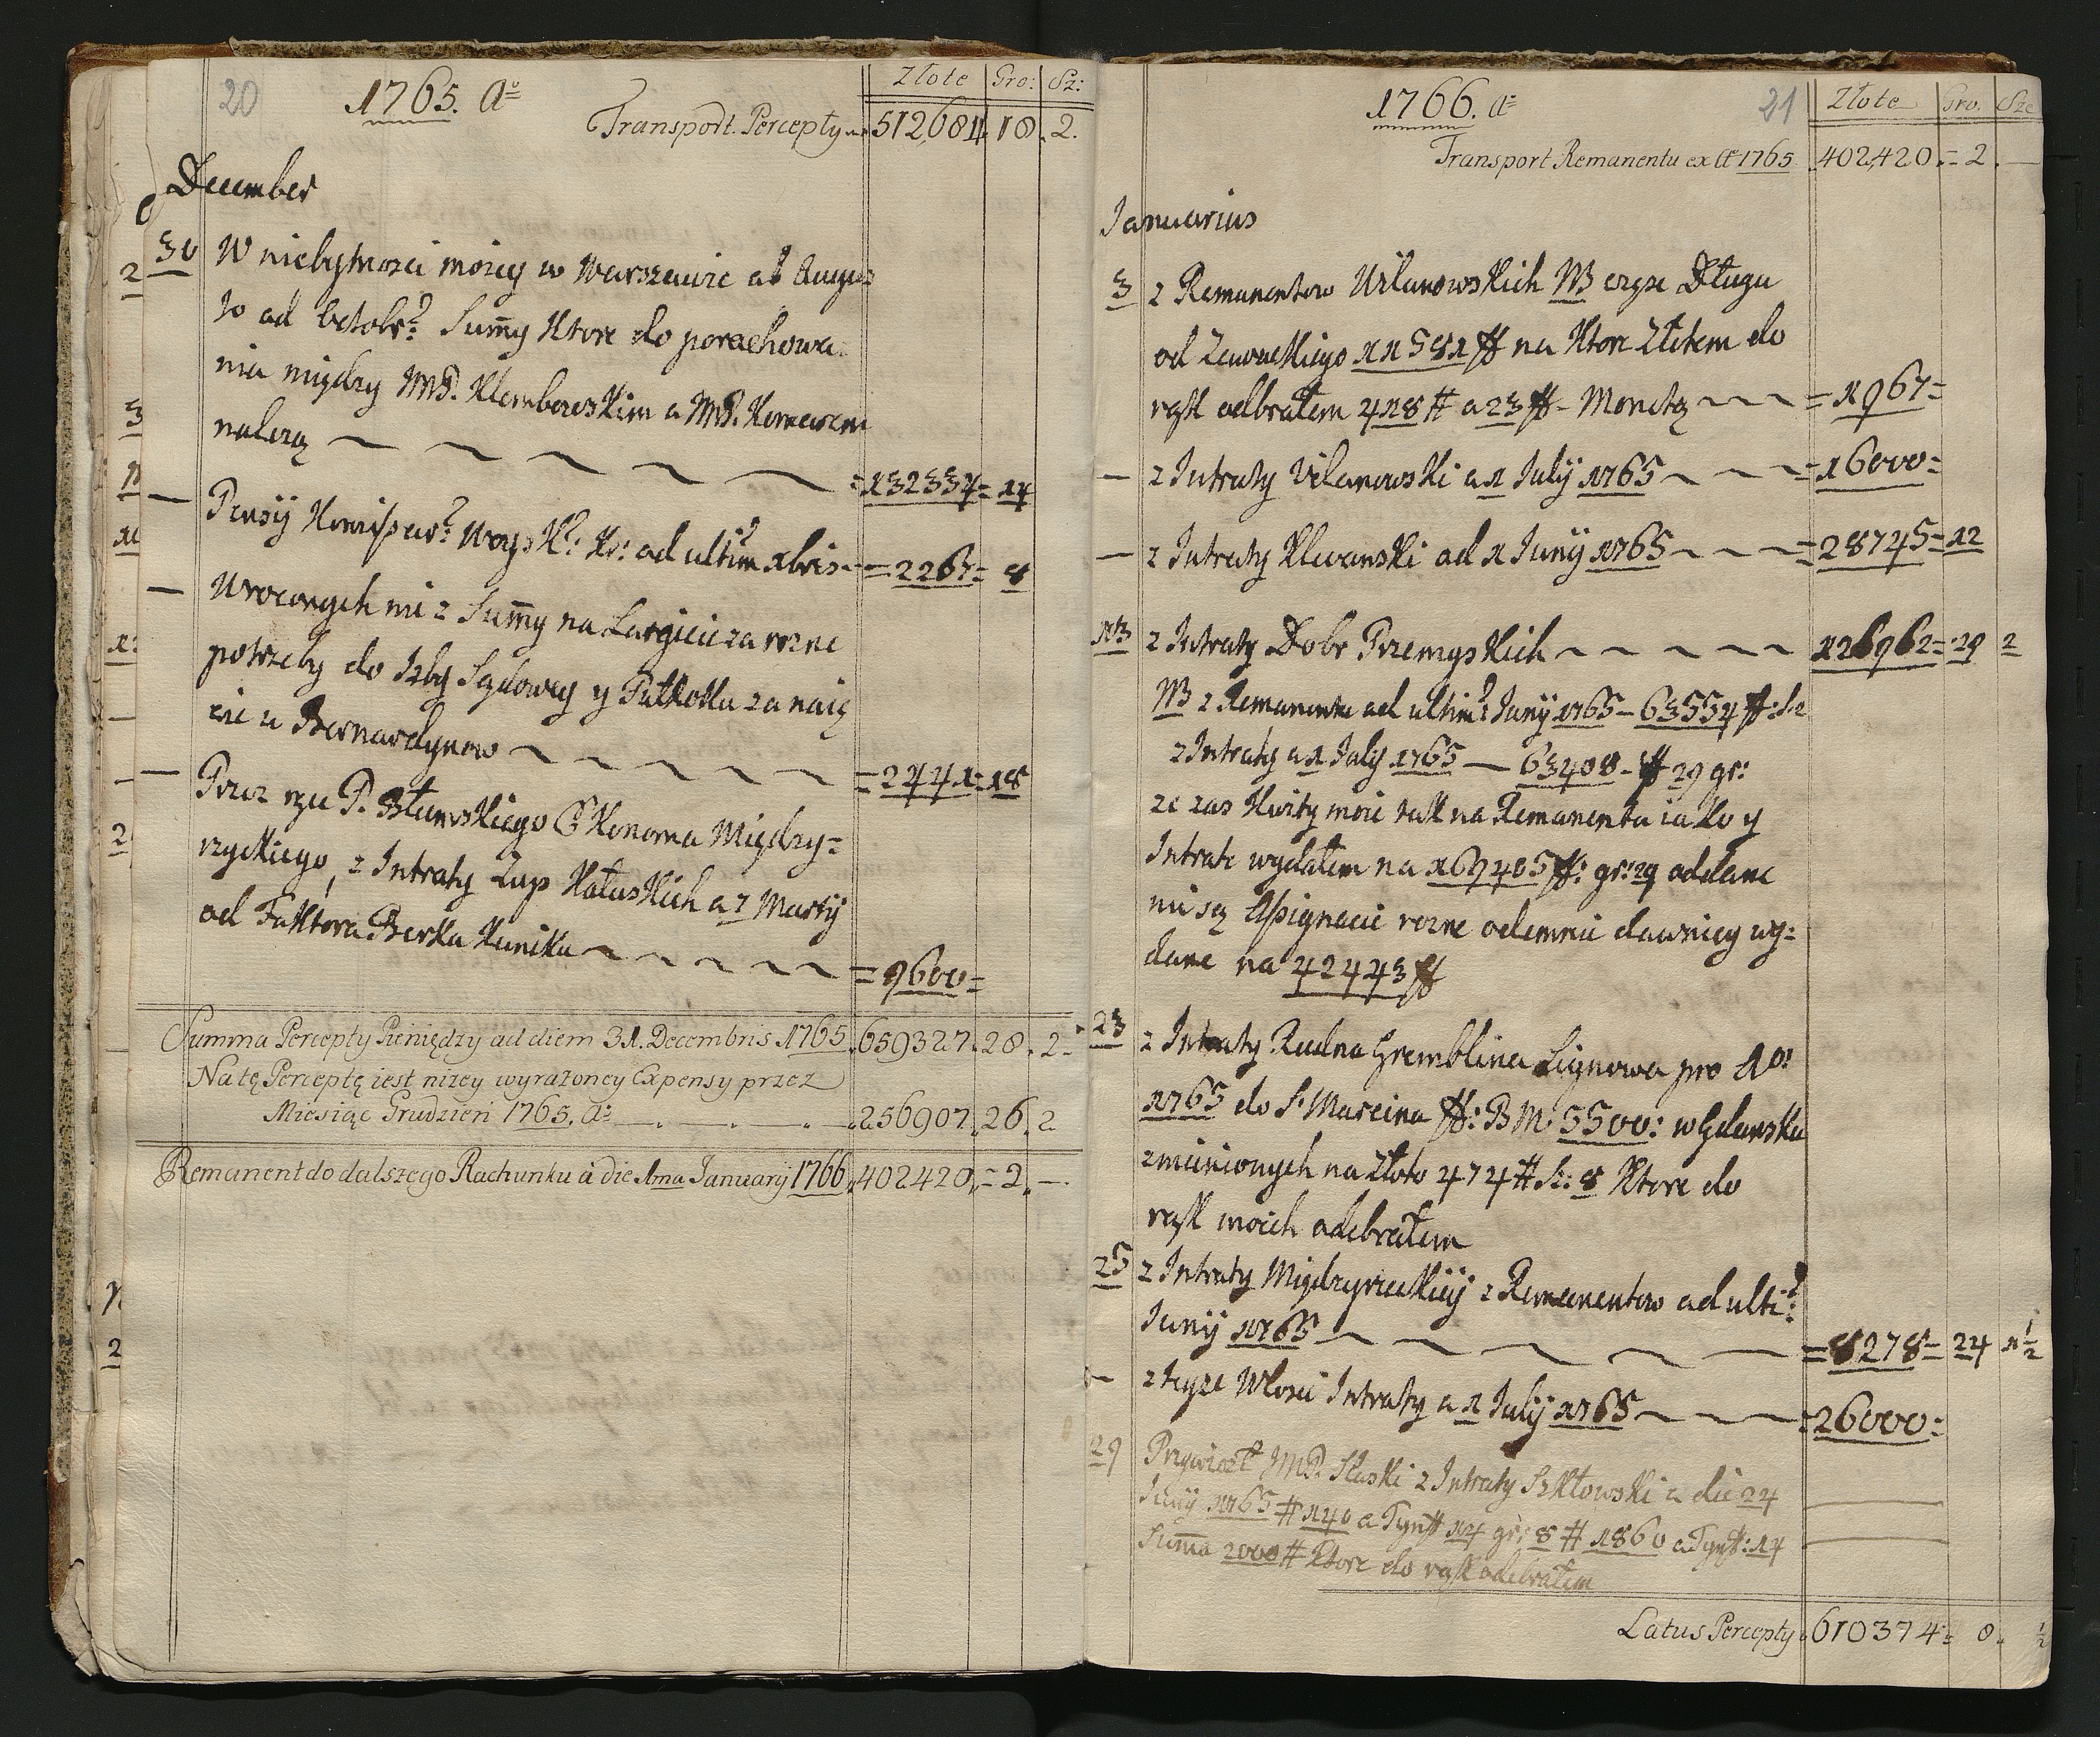 20
1765. Ao
Złote Gro: Sz:
Transport Percepty 512,684. 18. 2.
December
30 W niebytnosci moiey w Warszawie ab Augus
to ad Octobr: Summy Ktore do porachowa:
nia między JMP. Klemborskim a JMP.
nalezą = 132334 = 14
— Pensÿ ad ultim Xbris = 2267 = 8
— Wroconych mi z Summy na Largicie za rozne
potrzeby do Izby Sądowey y Pułkotka za naię
cie u Bernardynow = 2441 = 18
— Przez ręce P. Ekonoma Między=
rzyckiego, z Intraty Zup Kałuskich a 7 Martÿ
od Faktora Berka Kunika = 9600 =
Summa Percepty Pieniędzy ad diem 31. Decembris 1765 659327. 28. 2.
Na tę Perceptę iest nizey wyrazoney Expensy przez
Miesiąc Grudzień 1765. Ao 256907. 26. 2
Remanent do dalszego Rachunku à die 1ma Januarij 1766 402420. = 2. —
1766. Ao
21
Złote Gro. Sze
Transport Remanentu ex Ao 1765 402,420. = 2. —
Januarius
3 z Remanentow Wilanowskich NB czyse Długu
od 11581 ff na Ktore Złotem do
rąk odbrałem 418 # a 23 ff - Monetą = 1967 =
— z Intraty Vilanowski a 1 Julÿ 1765 = 16000 =
— z Intraty Klewanski ad 1 Junÿ 1765 = 28745 = 12
13 z Intraty Dobr Przemyskich 126962 = 29 2
NB z Remanentu ad ultim: Junÿ 1765 - 63554 ff: S: 2
z Intraty a 1 July 1765 — 63408 - ff 29 gr:
ze zas Kwity moie tak na Remanenta iako y
Intrate wydałem na 169405 ff: gr: 29 oddane
mi są Assignacie rozne odemnie dawniey wy=
dane na 42443 ff
23 z Intraty Rudna Gremblina Lignowa pro Ao:
1765 do S. Marcina ff: BM: 5500: w Gdansku
zmienionych na Złoto 474 # Sz: 8 Ktore do
rąk moich odebrałem
25 z Intraty Międzyrzeckiÿ z Remanentow ad ulti:
Junÿ 1765 = 8278 = 24 1 1/2
— z teyze Włosci Intraty a 1 Julÿ 1765 = 26000 =
29 Przywiozł JMP. Słaski z Intraty Szkłowski a die 24
Junÿ 1765 # 140 a Tynff 14 gr: 8 # 1860 a Tynff: 14
Summa 2000 # Ktore do rąk odebrałem
Latus Percepty 610374 = 8. 1/2